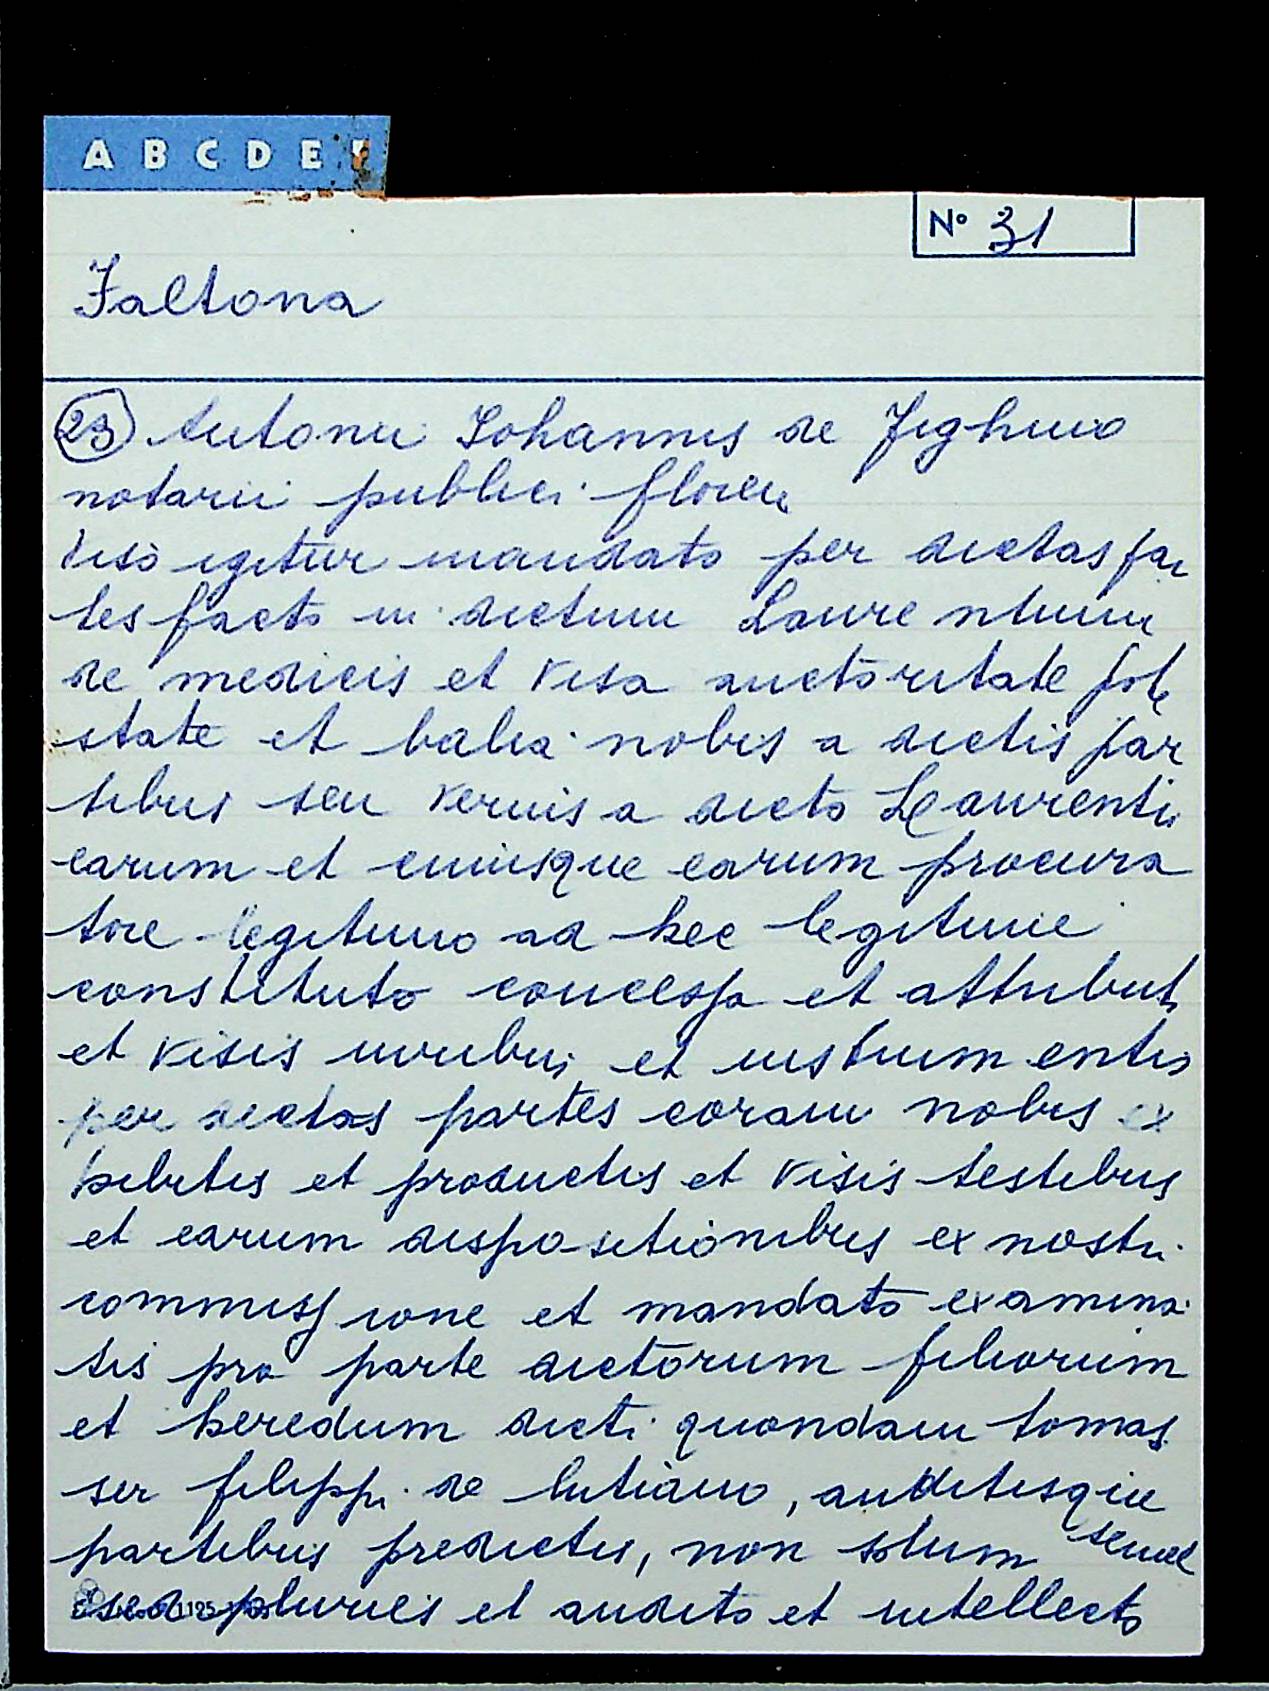 A B C D E
Nº 31
Faltona
23 Antonii Iohannis de Fighino
notarii publici floren
Viso igitur mandato per dictas par
tes facto in dictum Laurentium
de medicis et visa auctoritate pote
state et balia nobis a dictis par
tibus seu verius a dicto Laurentio
earum et cuiusque earum procura
tore legitimo ad hec legitime
constituto concessa et attributa
et visis iuribus et instrumentis
per dictas partes coram nobis ex
hibitis et productis et visis testibus
et earum dispositionibus ex nostri
commissione et mandato examina
tis pro parte dictorum filiorum
et heredum dicti quondam tomas
ser filippi de lutiano, auditisque
partibus predictis, non solum semel
sed pluries et audito et intellecto